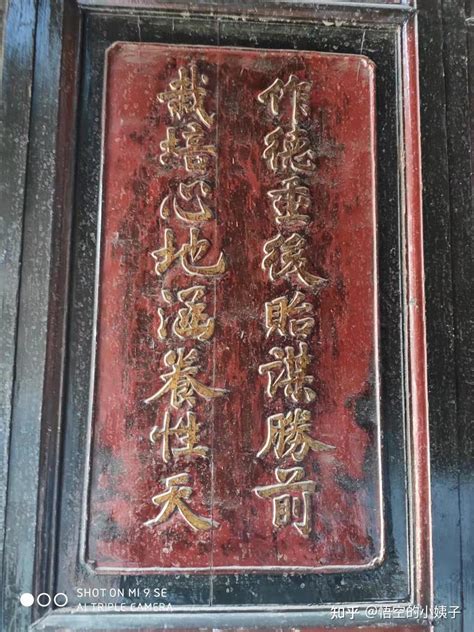 作德垂後貽謀勝前
栽培心地涵養性天
SHOT ON MI 9 SE
AI TRIPLE CAMERA
知乎 @悟空的小姨子